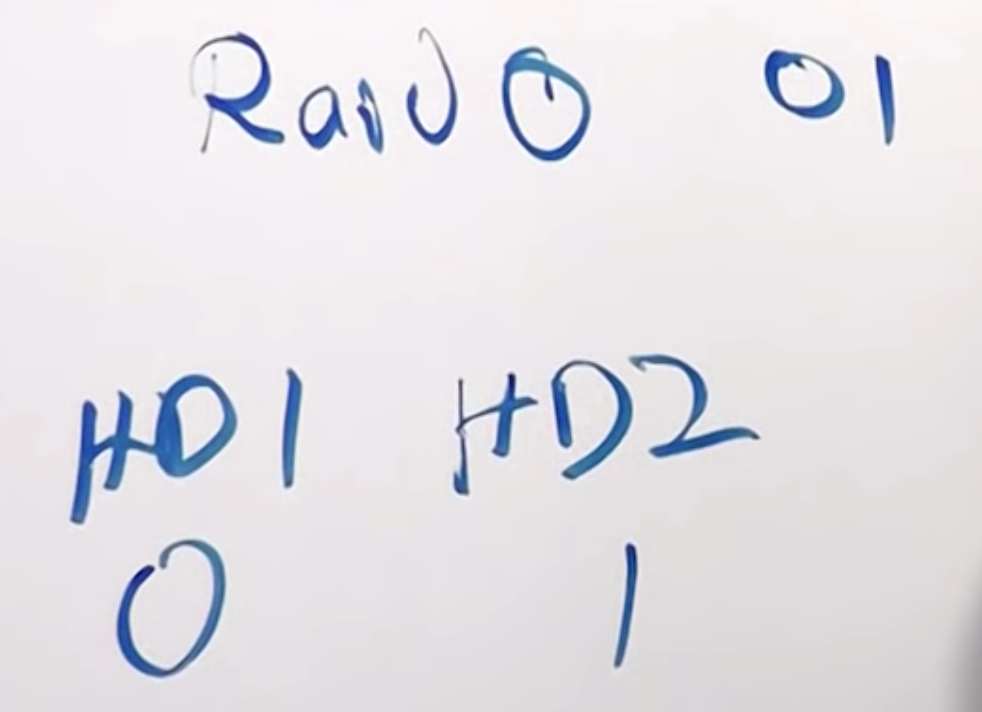 Raid 0 01
HD1 HD2
0 1